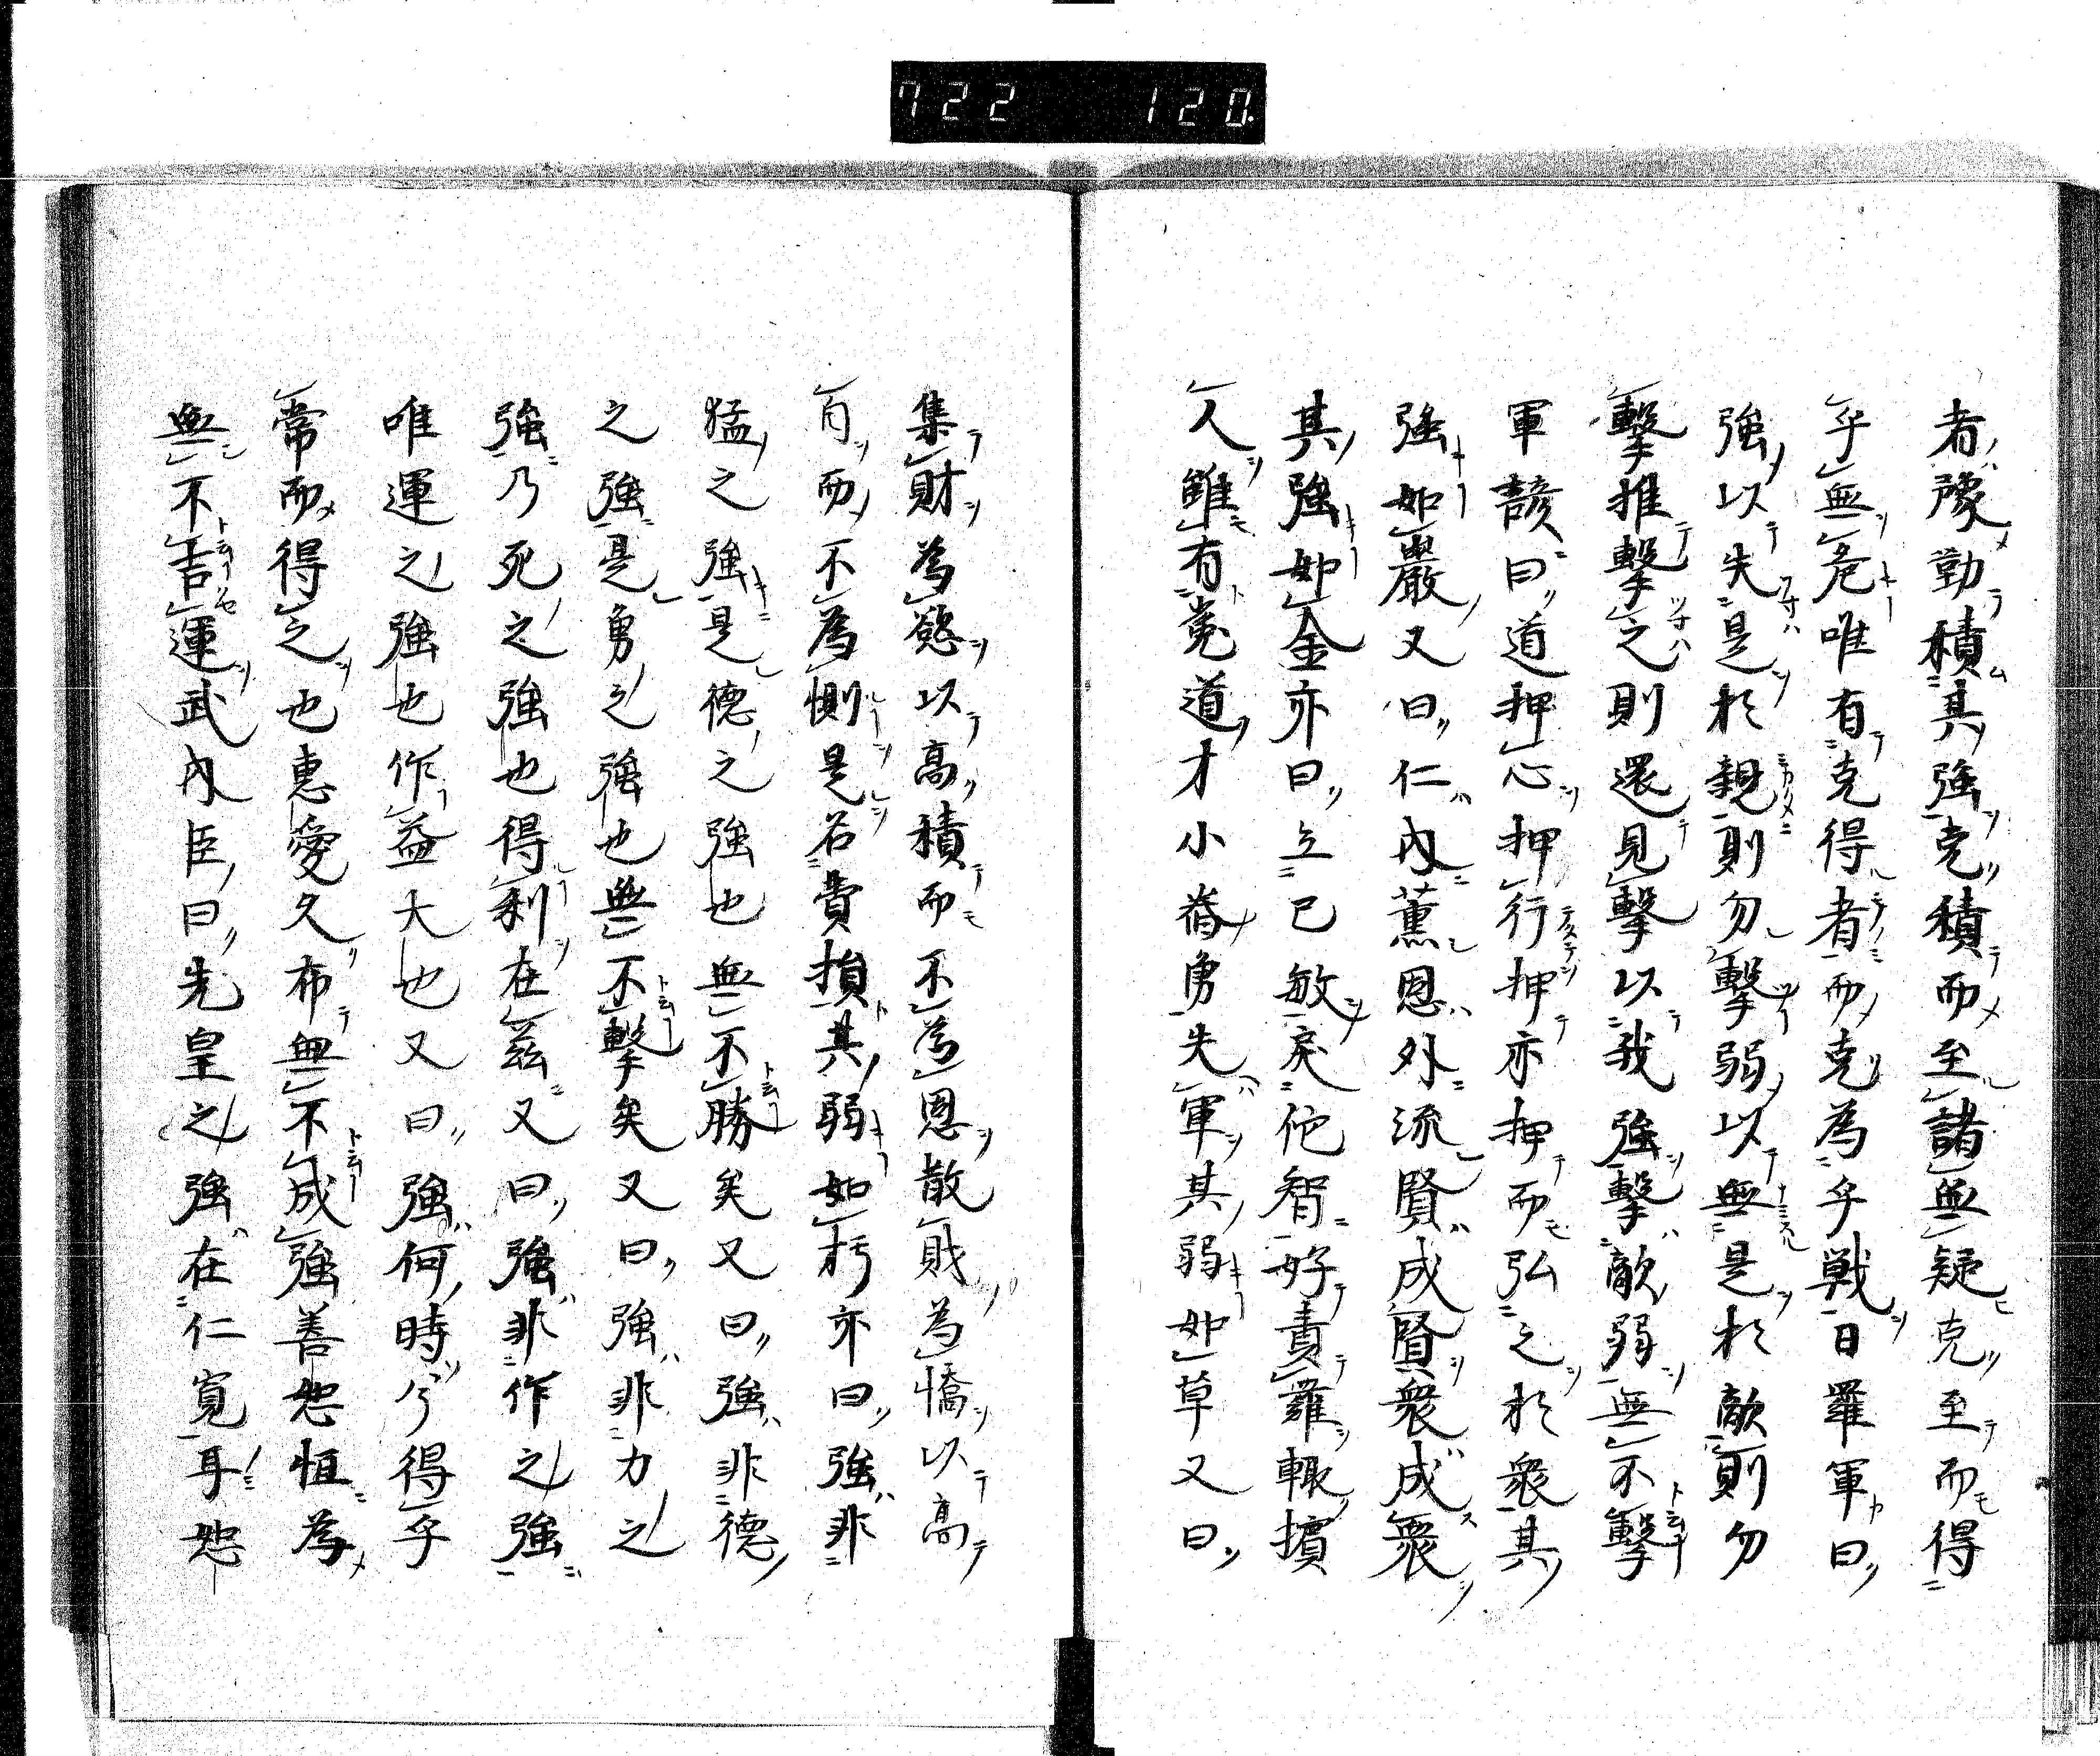 722 120
者豫勤積其強克積而至諸無疑克至而得
乎無危唯有克得者而克為乎戰日羅軍曰
強以失是於親則勿擊弱以無是於敵則勿
擊推擊之則還見擊以我強擊敵弱無不擊
軍諺曰道押心押行押亦押而弘之於衆其
強如巖又曰仁內薫恩外流賢成賢衆成衆
其強如金亦曰立己敏戻他智好責羅輙擯
人雖有道才小勇失軍其弱如草又曰
集財為慾以高積而不為恩散財為憍以高
自而不為惻是名費損其弱如朽亦曰強非
猛之強是德之強也無不勝矣又曰強非德
之強是勇之強也無不擊矣又曰強非力之
強乃死之強也得利在茲又曰強非作之強
唯運之強也作益大也又曰強何時得乎
常而得之也惠愛久布無不成強善恕恒為
無不吉運武內臣曰先皇之強在仁寬耳恕